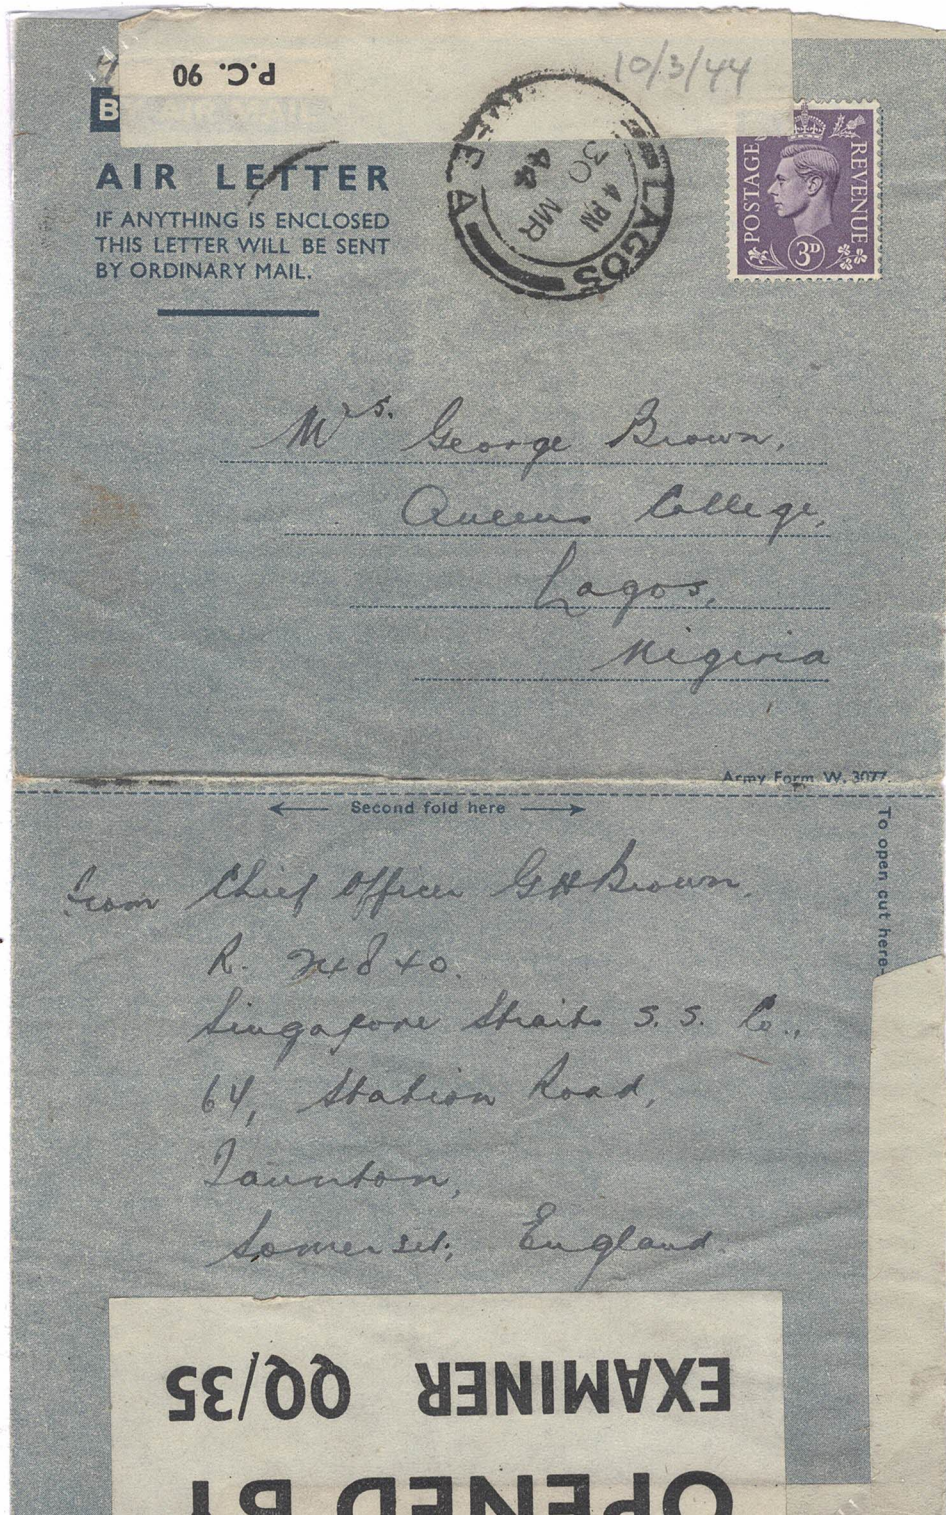 P.C. 90
10/3/44
B
AIR LETTER
IF ANYTHING IS ENCLOSED
THIS LETTER WILL BE SENT
BY ORDINARY MAIL.
LAGOS
4 PM
30 MR
44
A
POSTAGE REVENUE
3D
Mrs. George Brown,
Queens College,
Lagos,
Nigeria
Army Form W. 3077.
Second fold here
To open cut here
from Chief Officer G H Brown,
R. 24840.
Singapore Straits S. S. Co.,
64, Station Road,
Taunton,
Somerset, England.
EXAMINER QQ/35
OPENED BY